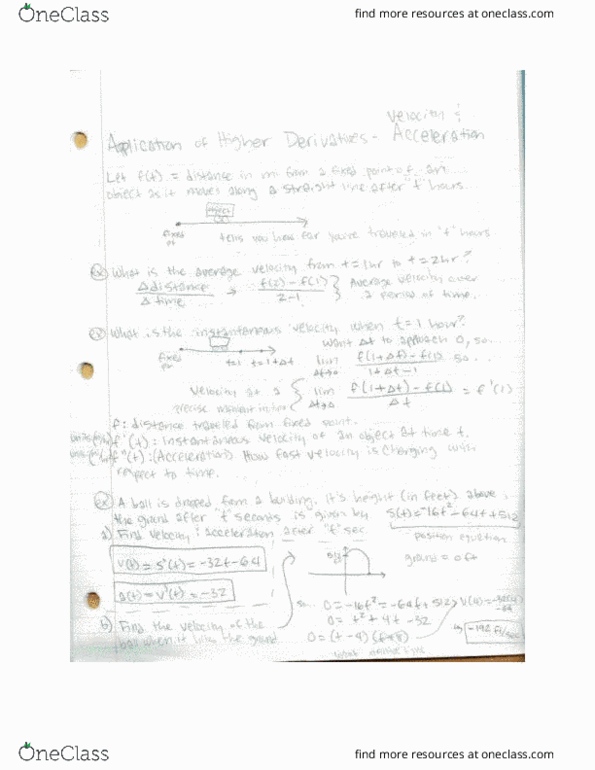 OneClass find more resources at oneclass.com
Velocity &
Application of Higher Derivatives - Acceleration
Let f(t) = distance in mi from a fixed point of an
object as it moves along a straight line after "t" hours.
object
fixed
pt
tells you how far you've traveled in "t" hours
Ex What is the average velocity from t=1hr to t=2hr?
Δdistance → f(2)-f(1) Average velocity over
Δtime 2-1 a period of time.
Ex What is the instantaneous velocity when t=1 hour?
want Δt to approach 0, so..
fixed
pt
t=1 t=1+Δt
lim f(1+Δt)-f(1) so..
Δt→0 1+Δt-1
Velocity at a lim f(1+Δt)-f(1) = f'(1)
precise moment in time Δt→0 Δt
f: distance traveled from fixed point.
f'(t): Instantaneous velocity of an object at time t.
f"(t): (Acceleration) How fast velocity is changing with
respect to time.
Ex A ball is dropped from a building. It's height (in feet) above
the ground after "t" seconds is given by s(t)=-16t²-64t+512
position equation
a) Find velocity & acceleration after "t" sec
ground = 0ft
v(t)=s'(t)=-32t-64
512
a(t)=v'(t)=-32
so... 0=-16t²=-64t+512 v(4)=-32(4)
-64
0= t²+4t-32
b) Find the velocity of the 0=(t-4)(t+8) -192 ft/sec
ball when it hits the ground
OneClass find more resources at oneclass.com